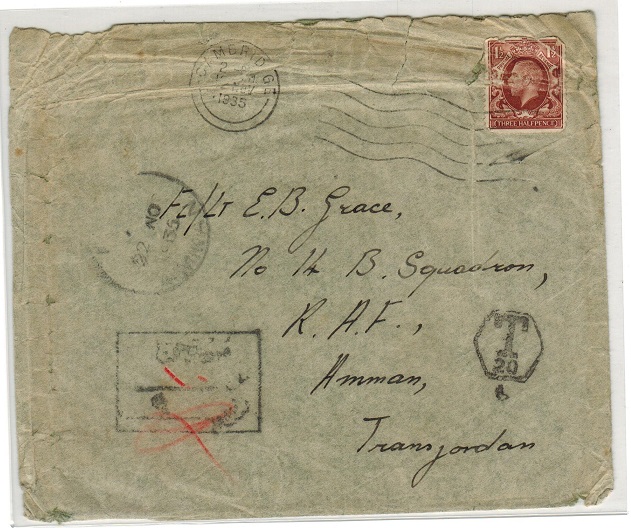 CAMBRIDGE
1935
1½ 1½
THREE HALFPENCE
22 NO
1935
Fl/Lt E.B. Grace,
No 14 B. Squadron,
R.A.F.,
Amman,
Transjordan
T
20